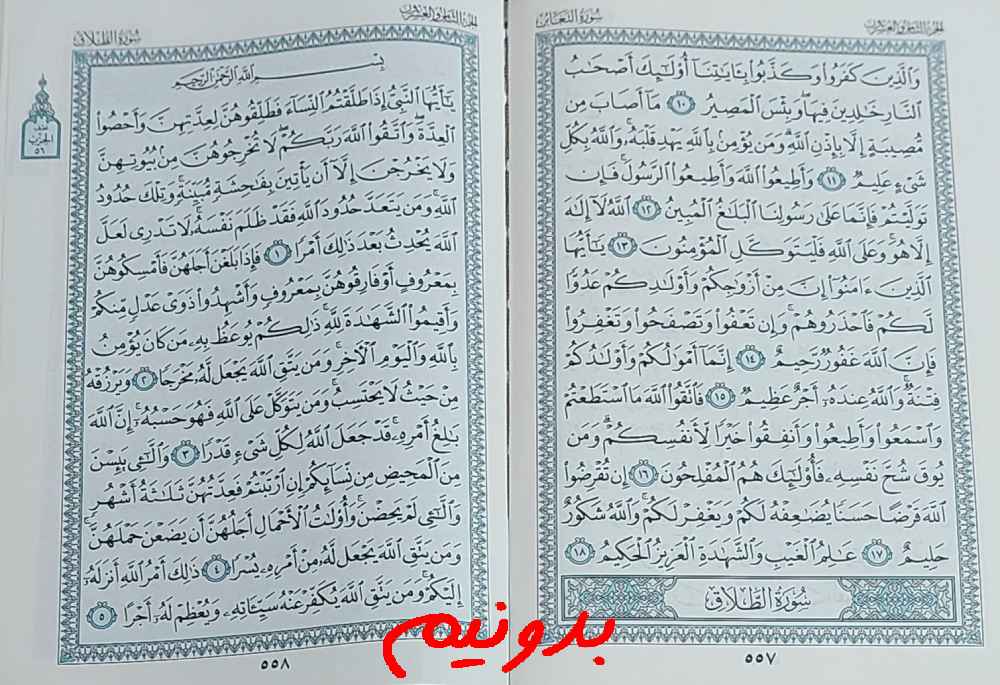 الجزء الثامن والعشرون
سورة التغابن
وَالَّذِينَ كَفَرُوا وَكَذَّبُوا بِـَٔايَـٰتِنَا أُو۟لَـٰٓئِكَ أَصْحَـٰبُ
النَّارِ خَـٰلِدِينَ فِيهَا وَبِئْسَ الْمَصِيرُ ١٠ مَا أَصَابَ مِن
مُّصِيبَةٍ إِلَّا بِإِذْنِ اللَّهِ وَمَن يُؤْمِنۢ بِاللَّهِ يَهْدِ قَلْبَهُۥ وَاللَّهُ بِكُلِّ
شَىْءٍ عَلِيمٌ ١١ وَأَطِيعُوا اللَّهَ وَأَطِيعُوا الرَّسُولَ فَإِن
تَوَلَّيْتُمْ فَإِنَّمَا عَلَىٰ رَسُولِنَا الْبَلَـٰغُ الْمُبِينُ ١٢ اللَّهُ لَا إِلَـٰهَ
إِلَّا هُوَ وَعَلَى اللَّهِ فَلْيَتَوَكَّلِ الْمُؤْمِنُونَ ١٣ يَـٰٓأَيُّهَا
الَّذِينَ ءَامَنُوا إِنَّ مِنْ أَزْوَٰجِكُمْ وَأَوْلَـٰدِكُمْ عَدُوًّا
لَّكُمْ فَاحْذَرُوهُمْ وَإِن تَعْفُوا وَتَصْفَحُوا وَتَغْفِرُوا
فَإِنَّ اللَّهَ غَفُورٌ رَّحِيمٌ ١٤ إِنَّمَا أَمْوَٰلُكُمْ وَأَوْلَـٰدُكُمْ
فِتْنَةٌ وَاللَّهُ عِندَهُۥ أَجْرٌ عَظِيمٌ ١٥ فَاتَّقُوا اللَّهَ مَا اسْتَطَعْتُمْ
وَاسْمَعُوا وَأَطِيعُوا وَأَنفِقُوا خَيْرًا لِّأَنفُسِكُمْ وَمَن
يُوقَ شُحَّ نَفْسِهِۦ فَأُو۟لَـٰٓئِكَ هُمُ الْمُفْلِحُونَ ١٦ إِن تُقْرِضُوا
اللَّهَ قَرْضًا حَسَنًا يُضَـٰعِفْهُ لَكُمْ وَيَغْفِرْ لَكُمْ وَاللَّهُ شَكُورٌ
حَلِيمٌ ١٧ عَـٰلِمُ الْغَيْبِ وَالشَّهَـٰدَةِ الْعَزِيزُ الْحَكِيمُ ١٨
سُورَةُ الطَّلَاقِ
٥٥٧
الجزء الثامن والعشرون
سورة الطلاق
بِسْمِ اللَّهِ الرَّحْمَـٰنِ الرَّحِيمِ
يَـٰٓأَيُّهَا النَّبِىُّ إِذَا طَلَّقْتُمُ النِّسَآءَ فَطَلِّقُوهُنَّ لِعِدَّتِهِنَّ وَأَحْصُوا
الْعِدَّةَ وَاتَّقُوا اللَّهَ رَبَّكُمْ لَا تُخْرِجُوهُنَّ مِنۢ بُيُوتِهِنَّ
وَلَا يَخْرُجْنَ إِلَّا أَن يَأْتِينَ بِفَـٰحِشَةٍ مُّبَيِّنَةٍ وَتِلْكَ حُدُودُ
اللَّهِ وَمَن يَتَعَدَّ حُدُودَ اللَّهِ فَقَدْ ظَلَمَ نَفْسَهُۥ لَا تَدْرِى لَعَلَّ
اللَّهَ يُحْدِثُ بَعْدَ ذَٰلِكَ أَمْرًا ١ فَإِذَا بَلَغْنَ أَجَلَهُنَّ فَأَمْسِكُوهُنَّ
بِمَعْرُوفٍ أَوْ فَارِقُوهُنَّ بِمَعْرُوفٍ وَأَشْهِدُوا ذَوَىْ عَدْلٍ مِّنكُمْ
وَأَقِيمُوا الشَّهَـٰدَةَ لِلَّهِ ذَٰلِكُمْ يُوعَظُ بِهِۦ مَن كَانَ يُؤْمِنُ
بِاللَّهِ وَالْيَوْمِ الْـَٔاخِرِ وَمَن يَتَّقِ اللَّهَ يَجْعَل لَّهُۥ مَخْرَجًا ٢ وَيَرْزُقْهُ
مِنْ حَيْثُ لَا يَحْتَسِبُ وَمَن يَتَوَكَّلْ عَلَى اللَّهِ فَهُوَ حَسْبُهُۥ إِنَّ اللَّهَ
بَـٰلِغُ أَمْرِهِۦ قَدْ جَعَلَ اللَّهُ لِكُلِّ شَىْءٍ قَدْرًا ٣ وَالَّـٰٓـِٔى يَئِسْنَ
مِنَ الْمَحِيضِ مِن نِّسَآئِكُمْ إِنِ ارْتَبْتُمْ فَعِدَّتُهُنَّ ثَلَـٰثَةُ أَشْهُرٍ
وَالَّـٰٓـِٔى لَمْ يَحِضْنَ وَأُو۟لَـٰتُ الْأَحْمَالِ أَجَلُهُنَّ أَن يَضَعْنَ حَمْلَهُنَّ
وَمَن يَتَّقِ اللَّهَ يَجْعَل لَّهُۥ مِنْ أَمْرِهِۦ يُسْرًا ٤ ذَٰلِكَ أَمْرُ اللَّهِ أَنزَلَهُۥ
إِلَيْكُمْ وَمَن يَتَّقِ اللَّهَ يُكَفِّرْ عَنْهُ سَيِّـَٔاتِهِۦ وَيُعْظِمْ لَهُۥ أَجْرًا ٥
نصف
الحزب
٥٦
٥٥٨
بدونيم